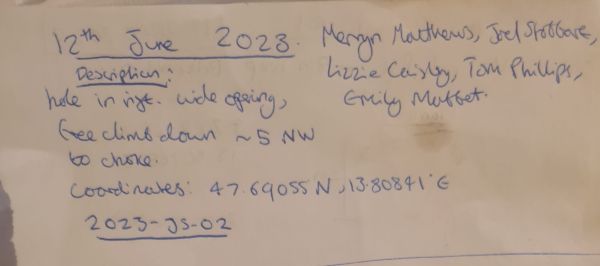 12th June 2023.
Merryn Matthews, Joel Stobbart,
Lizzie Caisley, Tom Phillips,
Emily Moffet.
Description:
hole in wide opening,
free climb down ~5
to choke
Coordinates: 47.69055 N, 13.80841 E
2023-JS-02